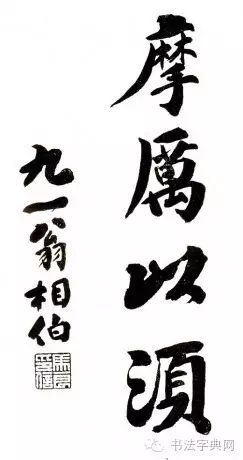 摩厲以須
九一翁相伯
书法字典网